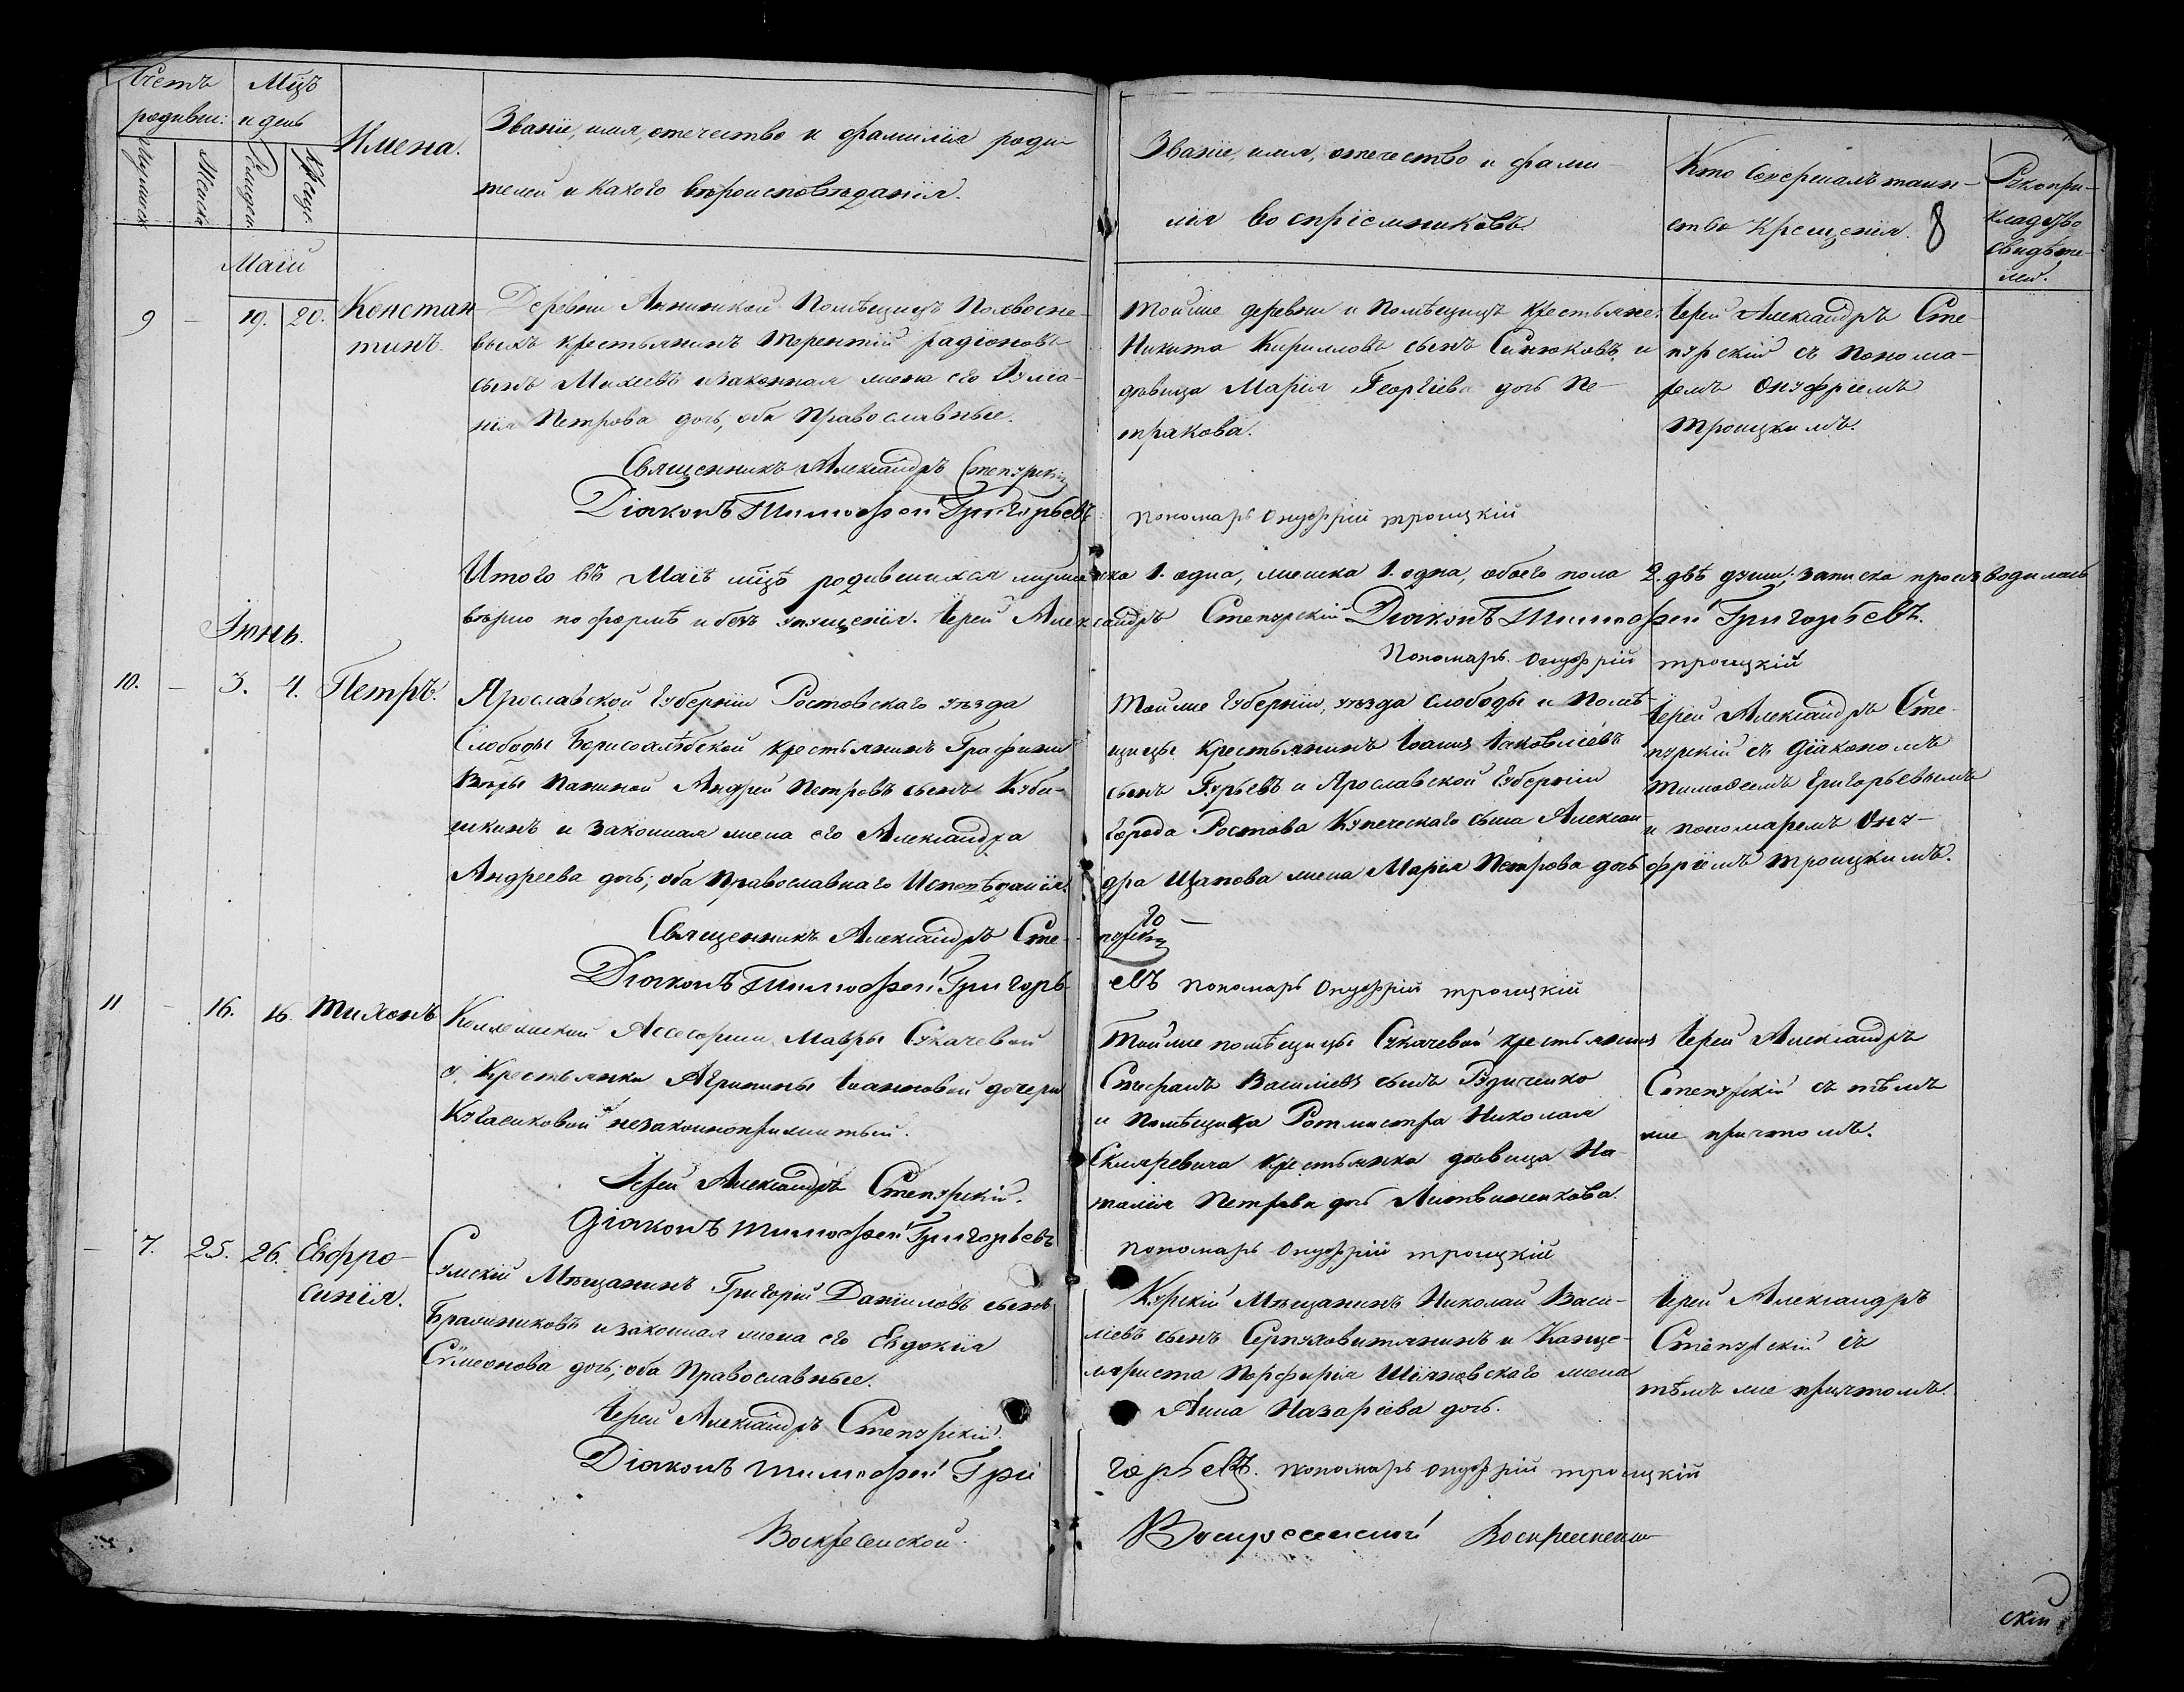 Счетъ родивш:
Мцъ и день
Имена.
Званіе, имя, отечество и фамилія роди-
телей и какого вѣроисповѣданія.
Званіе, имя, отечество и фами-
лія воспріемниковъ.
Кто совершалъ таин-
ство крещенія. 8
Рукопри-
кладство
свидѣте-
лей.
Маій
9 — 19. 20. Констан-
тинъ.
Деревни Помѣщицъ
выхъ крестьянинъ Терентій Радіоновъ
сынъ Михеевъ и законная жена его Уліа-
нія Петрова дочь, оба Православные.
Священникъ Александръ Степурскій
Діаконъ Тимофей Григорьевъ
Тойже деревни и Помѣщицъ крестьяне:
Никита Кирилловъ сынъ Синюковъ и
дѣвица Марія Георгіева дочь Пе-
тракова.
Пономарь Онуфрій Троицкій
Іерей Александръ Сте-
пурскій съ понома-
ремъ Онуфріемъ
Троицкимъ.
Итого въ Маіѣ мцѣ родившихся мужеска 1. одна, женска 1. одна, обоего пола 2. двѣ души; записка производилась
вѣрно по формѣ и безъ упущенія. Іерей Александръ Степурскій Діаконъ Тимофей Григорьевъ.
Пономарь Онуфрій Троицкій
Іюнь.
10. — 3. 4. Петръ.
Ярославской Губерніи Ростовскаго уѣзда
Слободы Борисоглѣбской крестьянинъ Графини
Вѣры Паниной Андрей Петровъ сынъ Куби-
шкинъ и законная жена его Александра
Андреева дочь; оба Православнаго Исповѣданія.
Священникъ Александръ Сте-
пурскій
Діаконъ Тимофей Григорь-
евъ Пономарь Онуфрій Троицкій
Тойже Губерніи, уѣзда слободы и Помѣ-
щицы крестьянинъ Іоаннъ Іаковлевъ
сынъ Гурьевъ и Ярославской Губерніи
города Ростова Купеческаго сына Алексан-
дра Щапова жена Марія Петрова дочь
Іерей Александръ Сте-
пурскій съ діакономъ
Тимофеемъ Григорьевымъ
и пономаремъ Ону-
фріемъ Троицкимъ.
11 — 16. 16. Тихонъ
Коллежской Ассесорши Мавры Сукачевой
у Крестьянки Агрипины Іоанновой дочери
незаконноприжитый.
Іерей Александръ Степурскій.
Діаконъ Тимофей Григорьевъ
Тойже помѣщицы Сукачевой крестьянинъ
Стефанъ Василіевъ сынъ Рудченко
и Помѣщика Ротмистра Николая
крестьянка дѣвица На-
талія Петрова дочь Литвиненкова.
Пономарь Онуфрій Троицкій
Іерей Александръ
Степурскій съ тѣмъ
же причтомъ.
— 7. 25. 26. Евфро-
синія.
Сумскій Мѣщанинъ Григорій Даніиловъ сынъ
Бражниковъ и законная жена его Евдокія
Сѵмеонова дочь; оба Православные.
Іерей Александръ Степурскій.
Діаконъ Тимофей Гри
горьевъ. Пономарь Онуфрій Троицкій
Курскій Мѣщанинъ Николай Васи-
ліевъ сынъ Серпуховитянинъ и Канце-
ляриста Порфирія жена
Анна Назаріева дочь.
Іерей Александръ
Степурскій съ
тѣмъ же причтомъ.
Воскресенской
скій